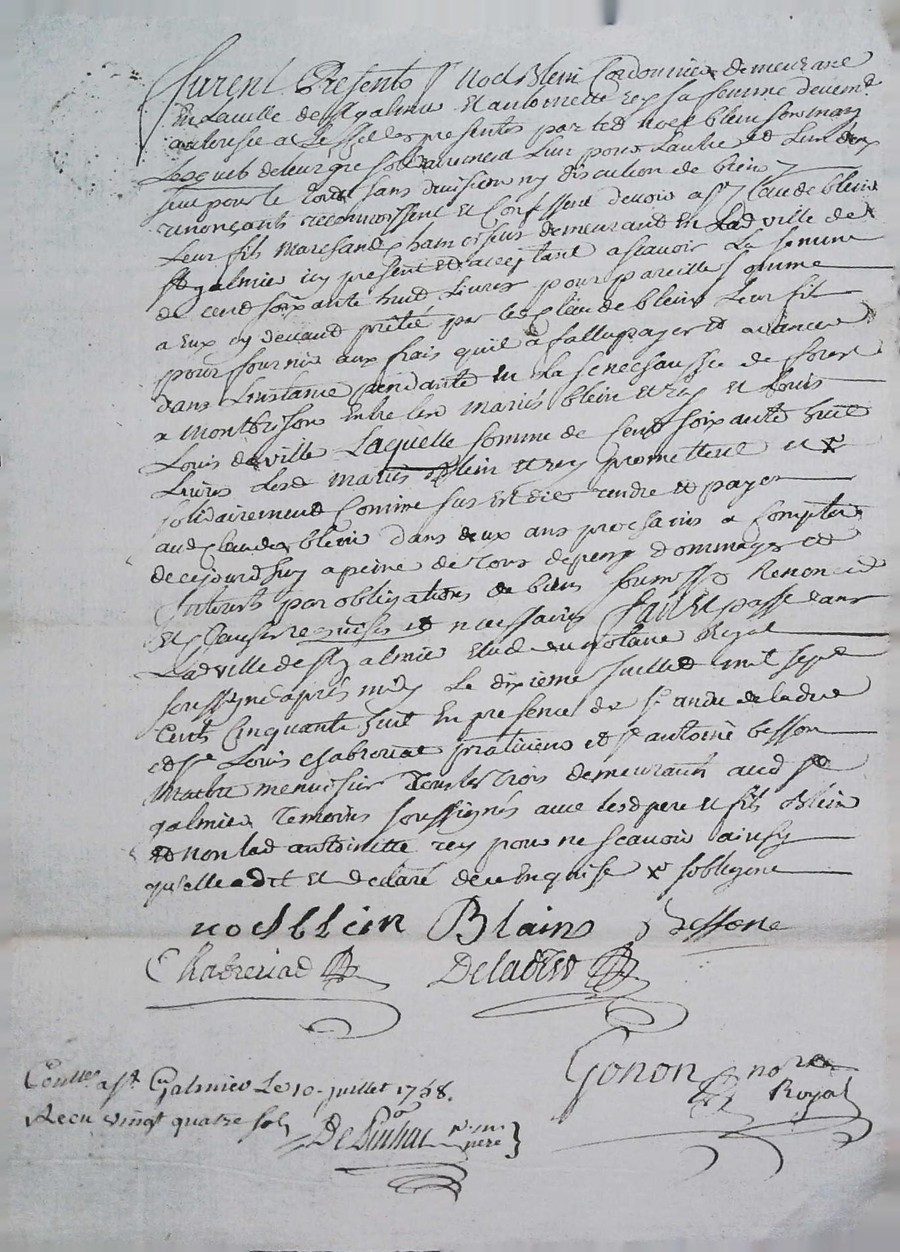 Furent Presents Sr noel Blein Cordonnier demeurant
En la ville de St galmier Et antoinette rey sa femme deuemt
authorisée a l'effet des presentes par led noel blein son mary
Lesquels de leur gre solidairement L'un pour L'autre et L'un deux
seul pour le tout sans division ny discution de biens y
renonçants reconnoissent Et Confessent devoir a Sr Claude blein
Leur fils Marchand chamoiseur demeurant En Lad ville de
St galmier icy present et acceptant ascavoir La somme
de cent soixante huit Livres pour pareille somme
a Eux cy devant prêtée par led Claude blein Leur fils
pour fournir aux frais quil a fallu payer et avancer
dans L'instance pendante En la senechaussée de forest
a Montbrison Entre les mariés blein et rey et Louis
Louis deville Laquelle somme de Cent soixante huit
Livres Lesd mariés Blein et rey promettent et x
solidairement Comme sus est dit rendre et payer
aud Claude blein dans deux ans prochains a Compter
de cejourd'huy a peine de tous depens Dommages et
Interets par obligations de biens soumiss Renonc
Et Clauses requises et necessaires fait Et passé dans
Lad ville de St galmier Etude du notaire Royal
soussigné après midy Le dixieme juillet mil sept
Cents Cinquante huit En presence de Sr andré deladret
et Sr Louis chabrouat praticiens et Sr antoine besson
Maitre menuisier Tous les trois demeurants aud St
galmier Temoins soussignés avec lesd pere et fils Blein
et non lad antoinette rey pour ne scavoir ainsy
qu'elle a dit Et declaré de ce Enquise x s'obligent
noel blein Blain Bessone
Chabrouat Deladret
Gonon nore Royal
Conllé a St Galmier Le 10 juillet 1758.
Recu vingt quatre sols